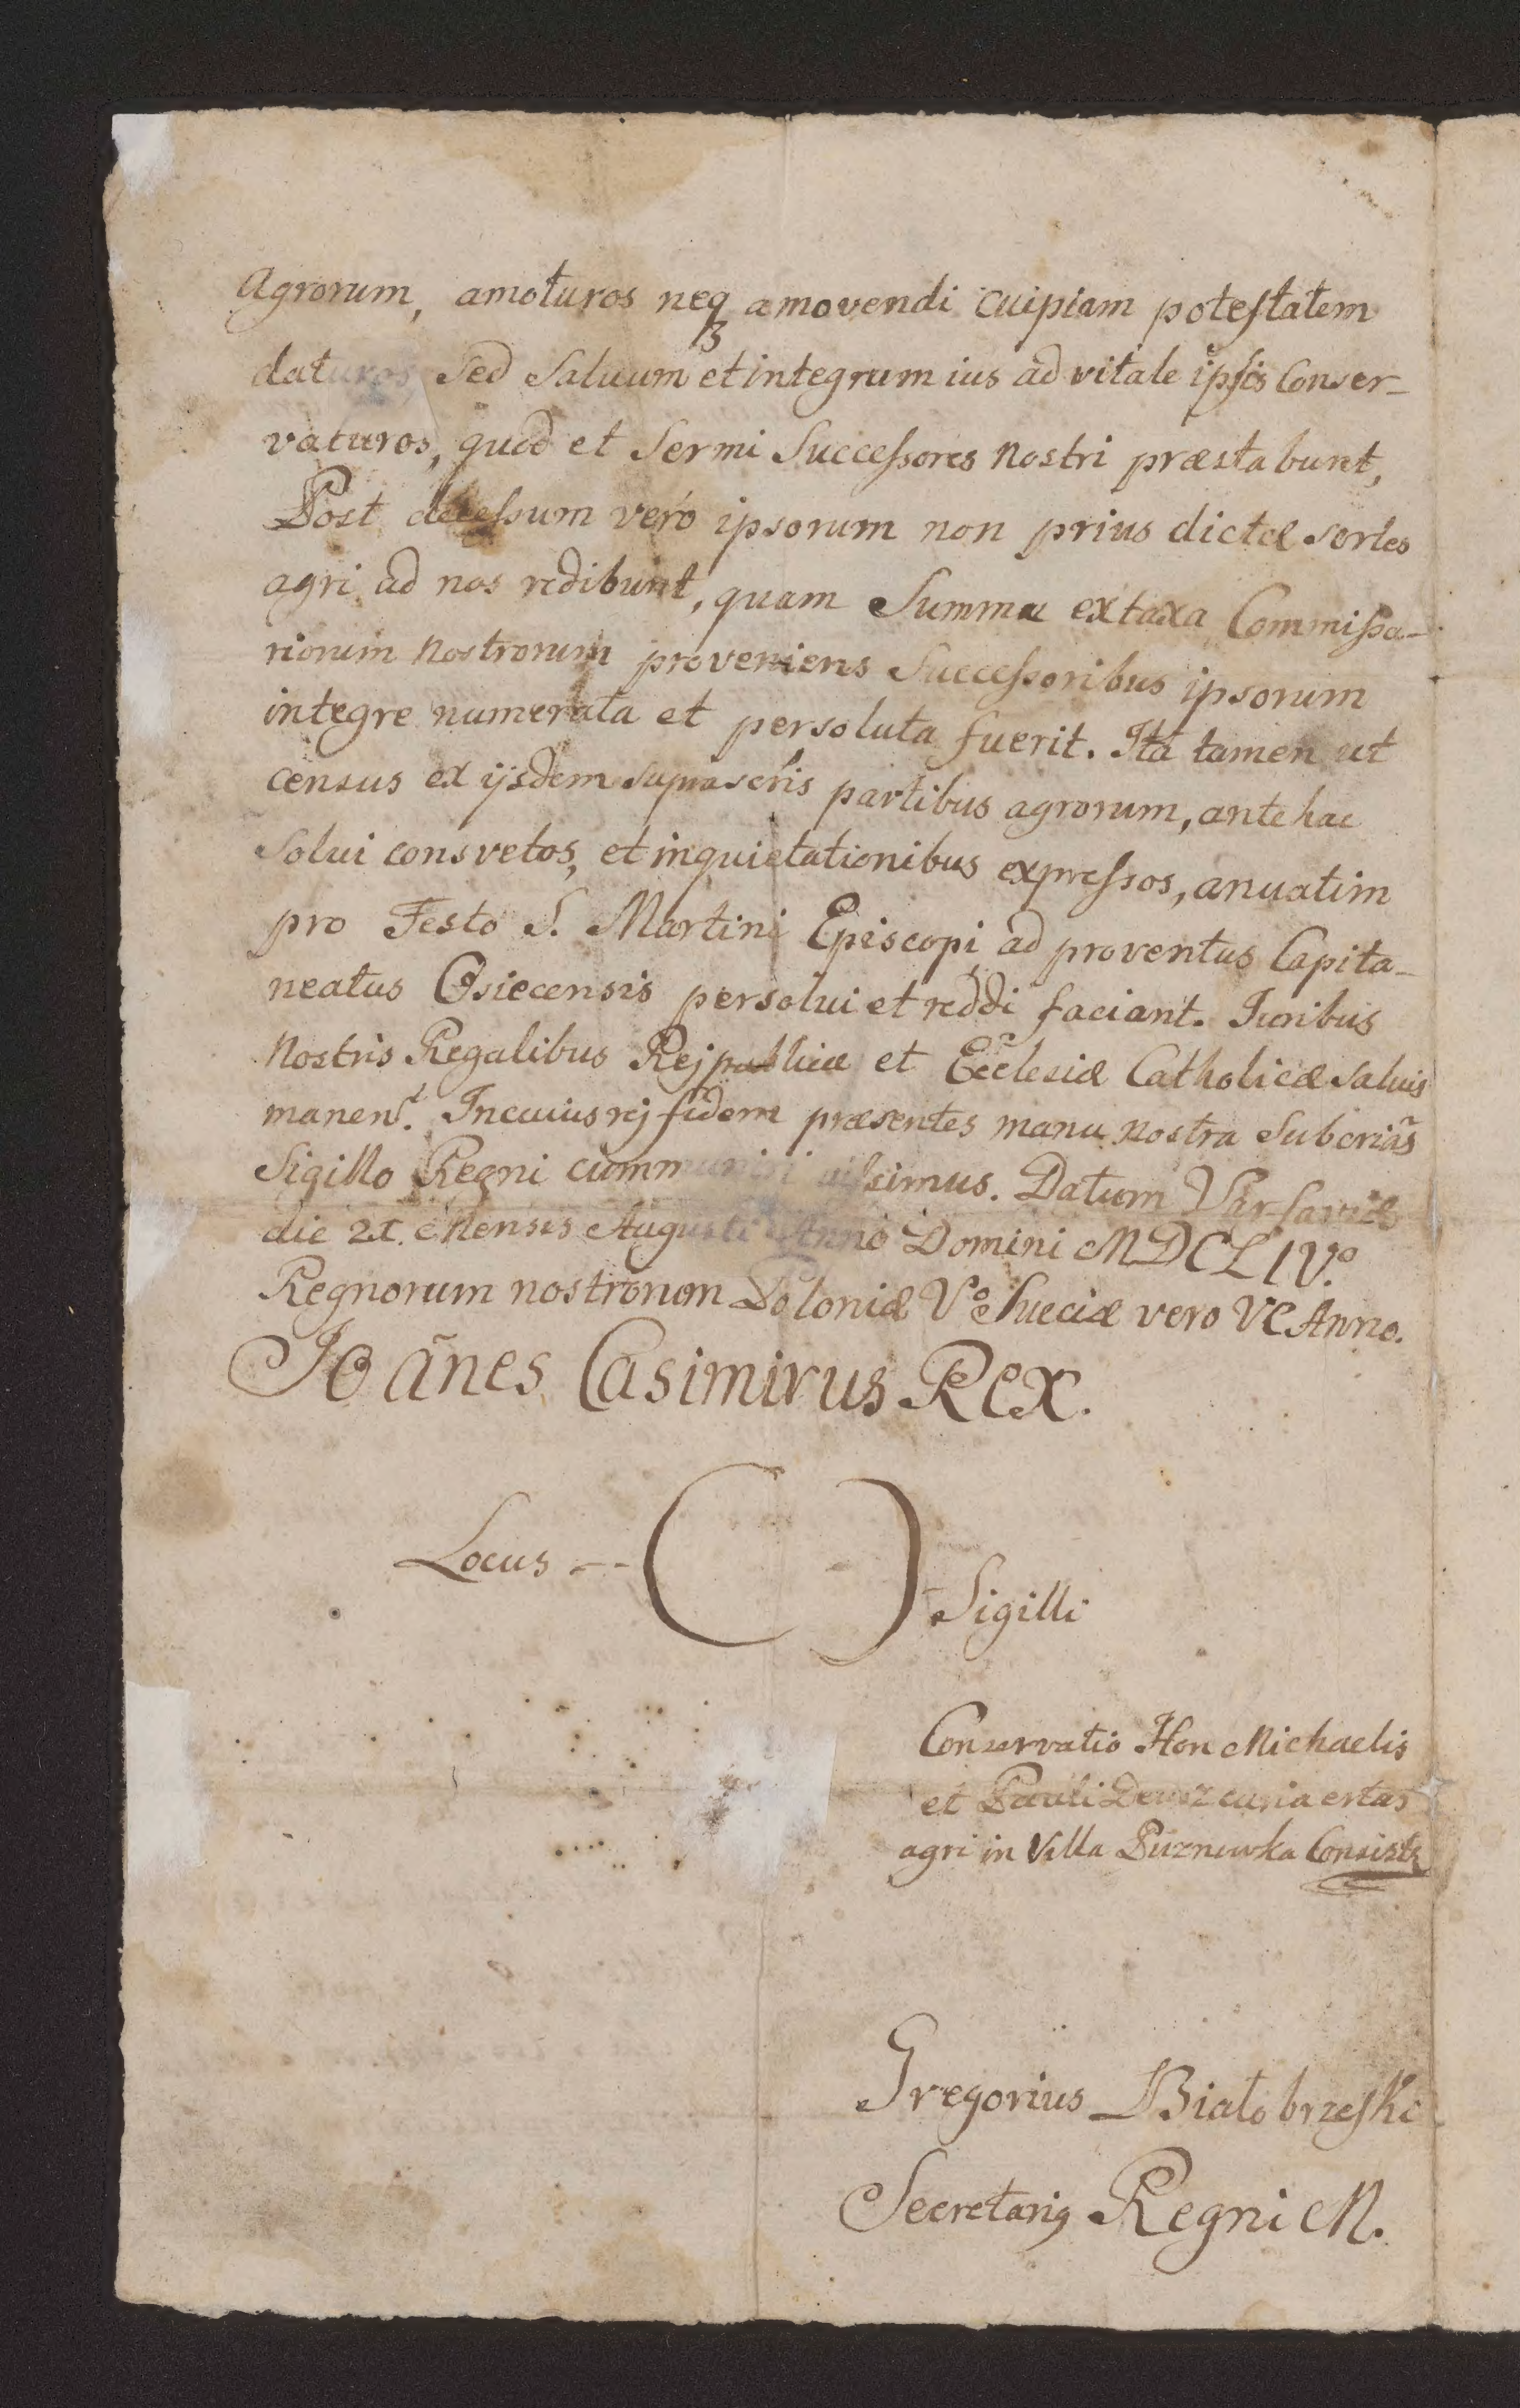 Agrorum, amoturos neqꝫ amovendi cuipiam potestatem
daturos, Sed Saluum et integrum ius ad vitale ipsis Conser-
vaturos, quod et Sermi Successores Nostri præstabunt,
Post decessum veró ipsorum non prius dictæ sortes
agri ad nos redibunt, quam Summa ex taxa Commissa-
riorum Nostrorum proveniens Successoribus ipsorum
integre numerata et persoluta fuerit. Ita tamen ut
census ex ijsdem suprascris partibus agrorum, ante hac
Solui consvetos, et inquietationibus expressos, anuatim
pro Festo S. Martini Episcopi ad proventus Capita-
neatus Osiecensis persolui et reddi faciant. Iuribus
Nostris Regalibus Reipublicæ et Ecclesiæ Catholicæ salvis
manent. In cuius rej fidem præsentes manu nostra Subcrias
Sigillo Regni cummuniri iussimus. Datum Varsaviæ
die 21. Mensis Augusti Anno Domini MDCLIV.º
Regnorum nostrorum Poloniæ Vº Sueciæ vero VI Anno.
Joãnes Casimirus Rex.
Locus -- ( ) - Sigilli
Conservatio Hon Michaelis
et Pauli curia
agri in Villa Puznowka Consists
Gregorius Białobrzeski
Secretariꝰ Regni M.